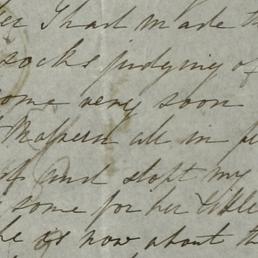 I had made th
socks judging of
come very soon
Malvern all in pe
and slept my
some for her little
he is now about th